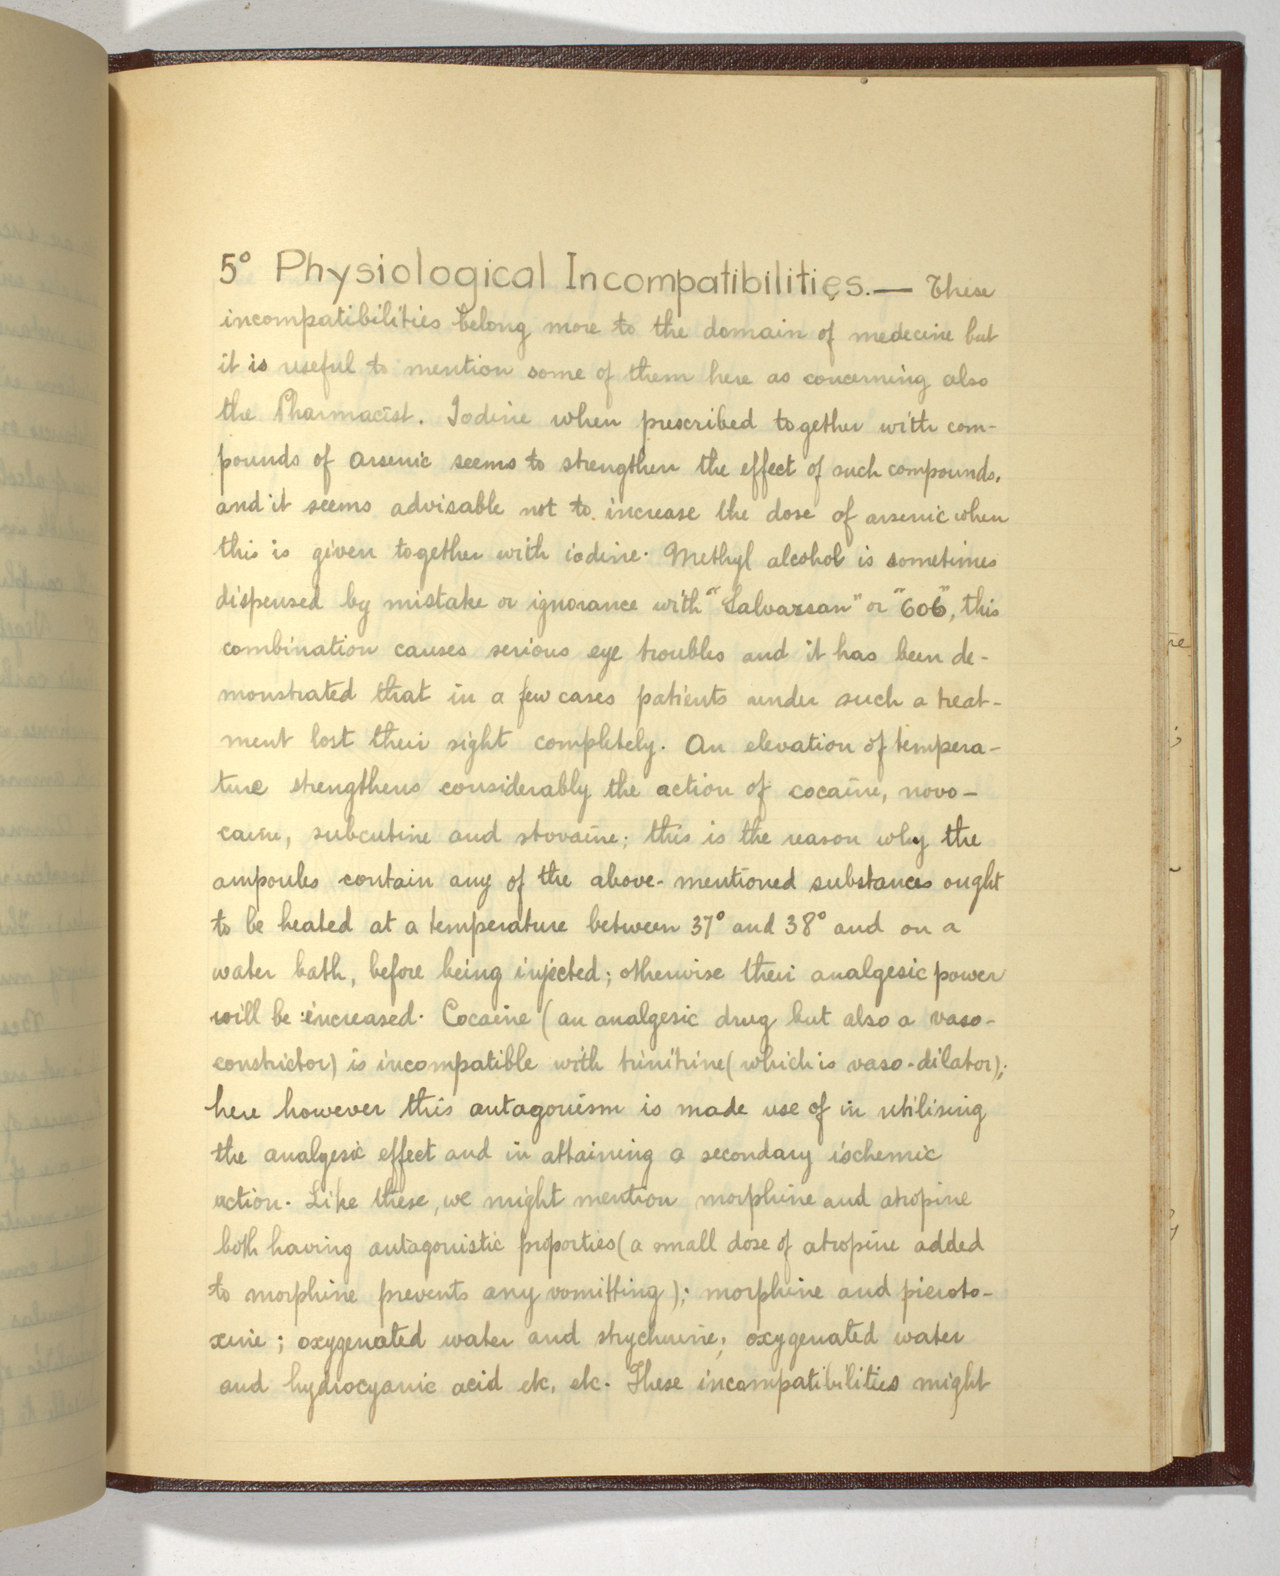 5° Physiological Incompatibilities. — These
incompatibilities belong more to the domain of medecine but
it is useful to mention some of them here as concerning also
the Pharmacist. Iodine when prescribed together with com-
pounds of arsenic seems to strengthen the effect of such compounds,
and it seems advisable not to increase the dose of arsenic when
this is given together with iodine. Methyl alcohol is sometimes
dispensed by mistake or ignorance with "Salvarsan" or "606", this
combination causes serious eye troubles and it has been de-
monstrated that in a few cases patients under such a treat-
ment lost their sight completely. An elevation of tempera-
ture strengthens considerably the action of cocaïne, novo-
caïne, subcutine and stovaïne; this is the reason why the
ampoules contain any of the above-mentioned substances ought
to be heated at a temperature between 37° and 38° and on a
water bath, before being injected; otherwise their analgesic power
will be increased. Cocaïne (an analgesic drug but also a vaso-
constrictor) is incompatible with trinitrine (which is vaso-dilator);
here however this antagonism is made use of in utilising
the analgesic effect and in attaining a secondary ischemic
action. Like these, we might mention morphine and atropine
both having antagonistic proporties (a small dose of atropine added
to morphine prevents any vomitting); morphine and picroto-
xine; oxygenated water and strychnine; oxygenated water
and hydrocyanic acid etc, etc. These incompatibilities might